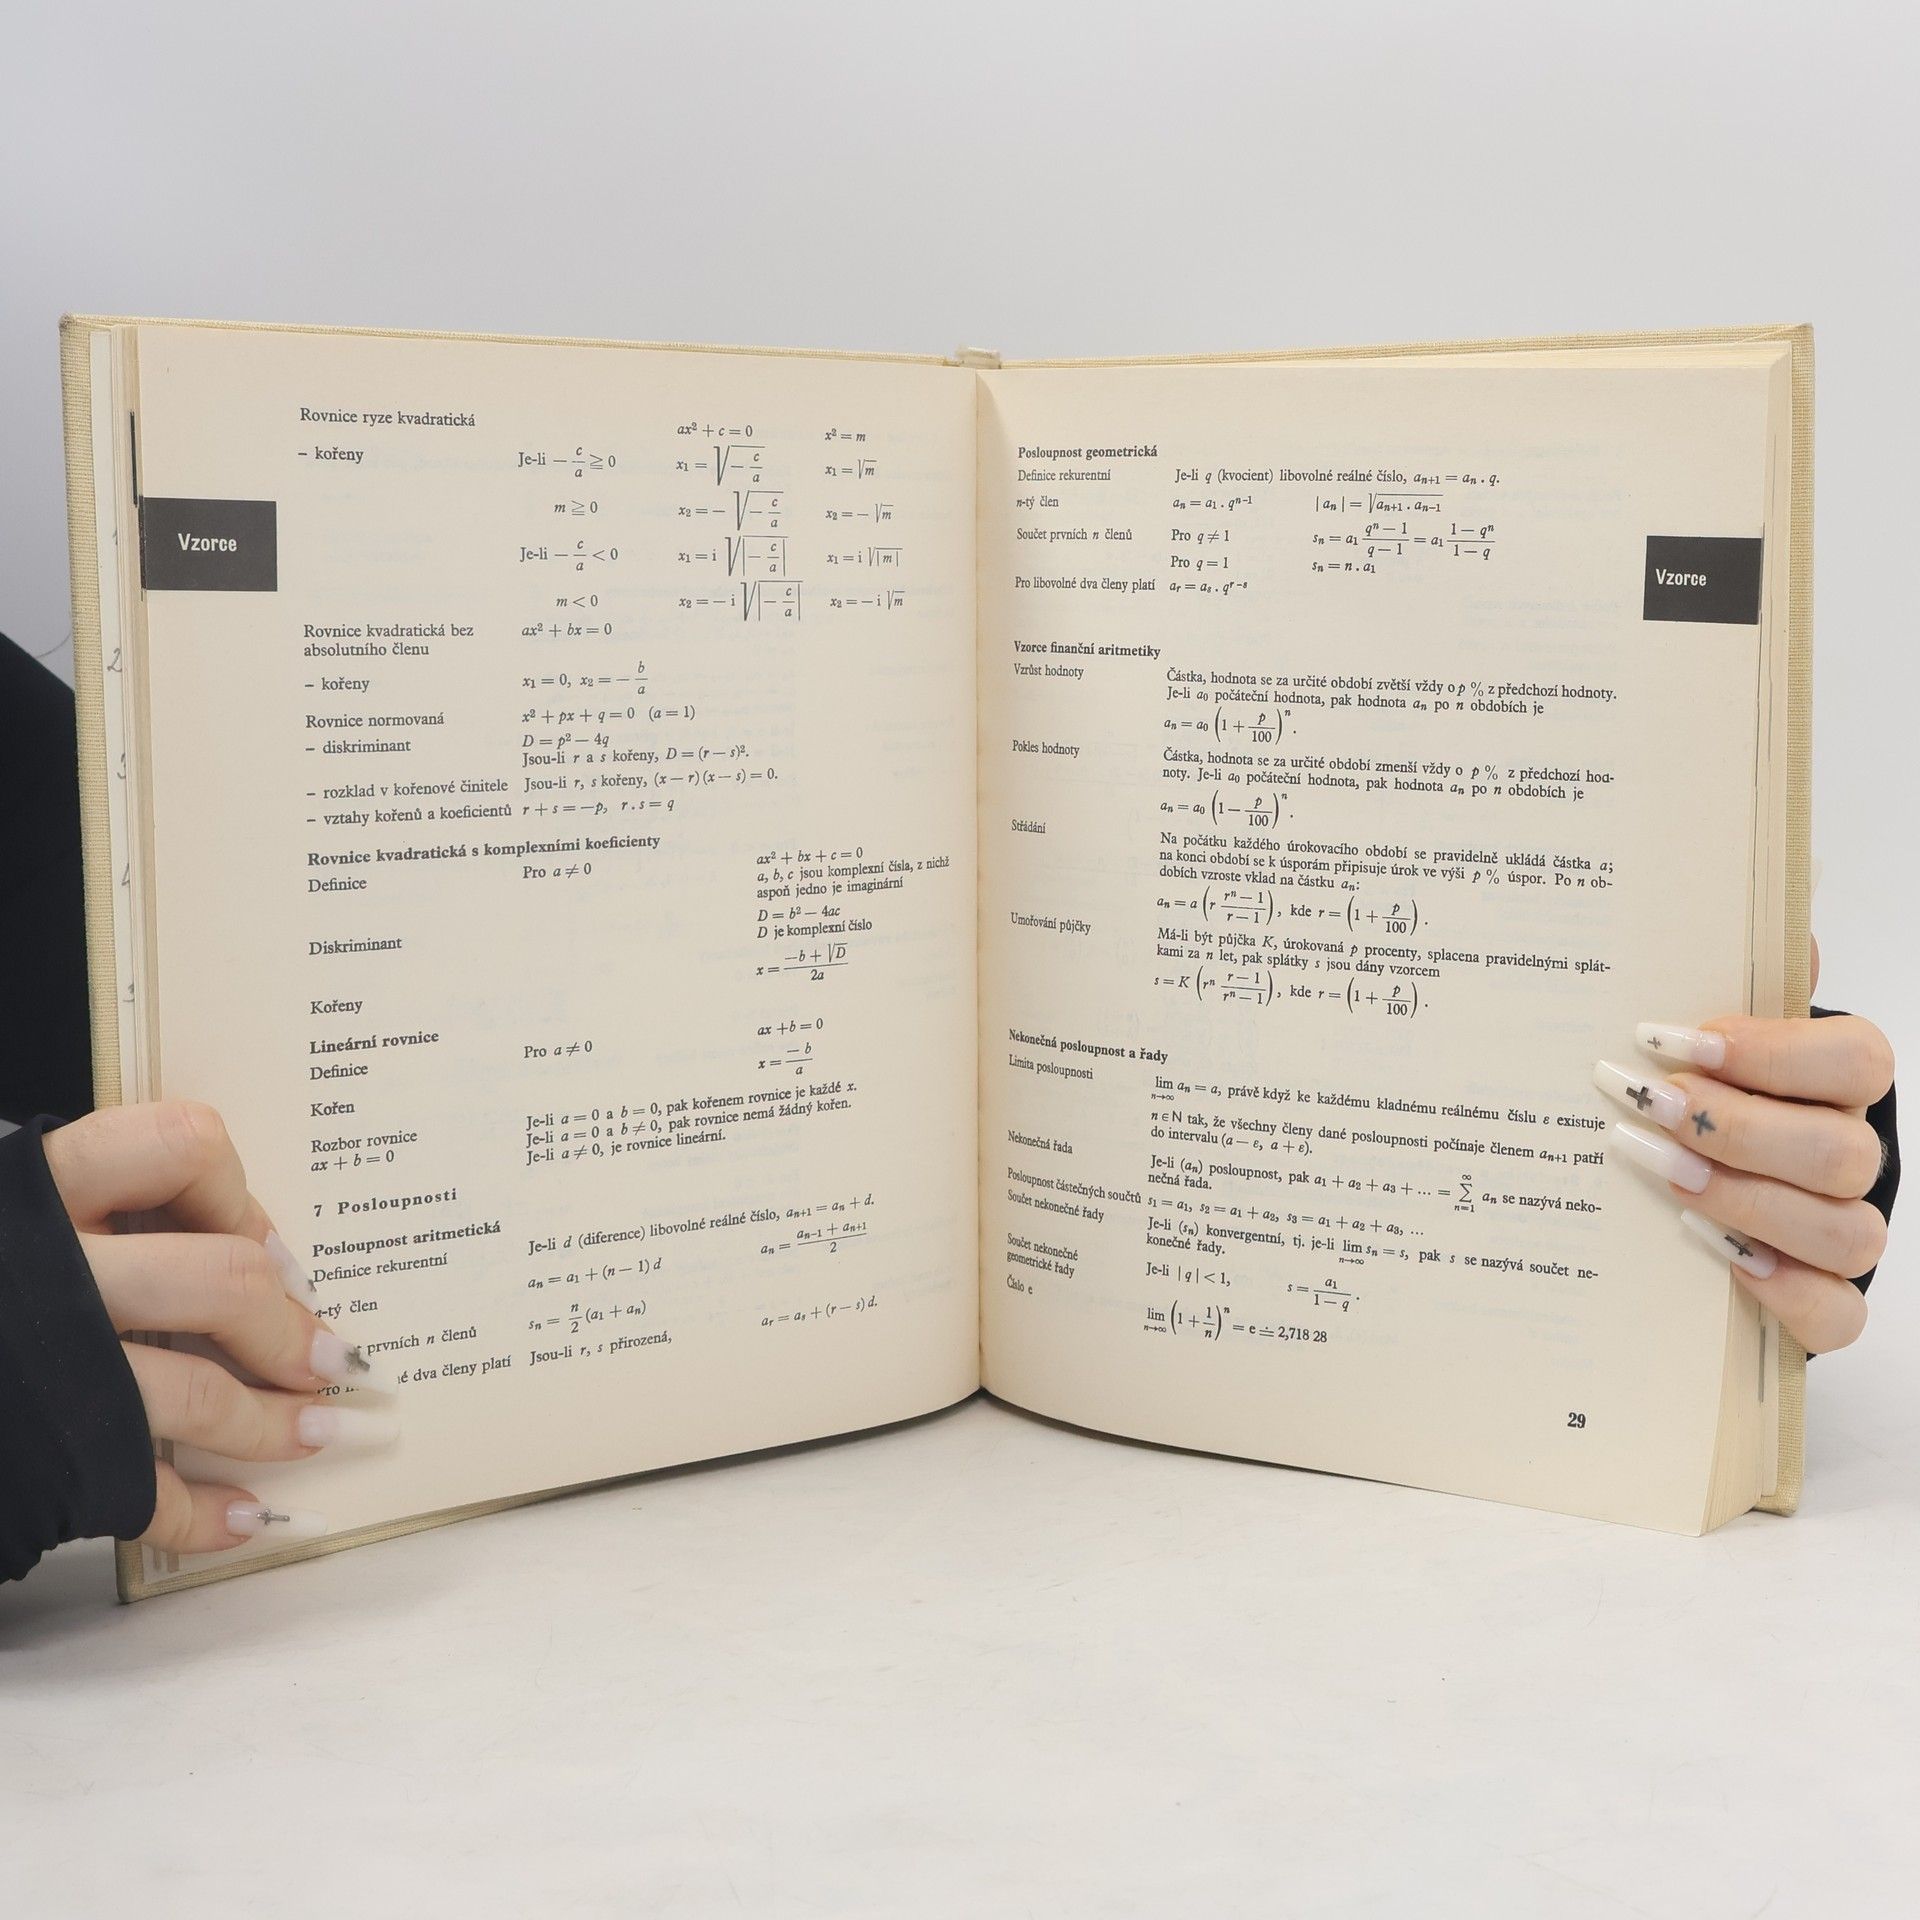 Vzorce
Rovnice ryze kvadratická ax² + c = 0 x² = m
– kořeny Je-li − c/a ≧ 0 x₁ = √(− c/a) x₁ = √m
m ≧ 0 x₂ = − √(− c/a) x₂ = − √m
Je-li − c/a < 0 x₁ = i √|− c/a| x₁ = i √|m|
m < 0 x₂ = − i √|− c/a| x₂ = − i √m
Rovnice kvadratická bez ax² + bx = 0
absolutního členu
– kořeny x₁ = 0, x₂ = − b/a
Rovnice normovaná x² + px + q = 0 (a = 1)
– diskriminant D = p² − 4q
Jsou-li r a s kořeny, D = (r − s)².
– rozklad v kořenové činitele Jsou-li r, s kořeny, (x − r) (x − s) = 0.
– vztahy kořenů a koeficientů r + s = −p, r . s = q
Rovnice kvadratická s komplexními koeficienty
Definice Pro a ≠ 0 ax² + bx + c = 0
a, b, c jsou komplexní čísla, z nichž
aspoň jedno je imaginární
Diskriminant D = b² − 4ac
D je komplexní číslo
Kořeny x = (−b + √D)/2a
Lineární rovnice
Definice Pro a ≠ 0 ax + b = 0
Kořen x = −b/a
Rozbor rovnice Je-li a = 0 a b = 0, pak kořenem rovnice je každé x.
ax + b = 0 Je-li a = 0 a b ≠ 0, pak rovnice nemá žádný kořen.
Je-li a ≠ 0, je rovnice lineární.
7 Posloupnosti
Posloupnost aritmetická
Definice rekurentní Je-li d (diference) libovolné reálné číslo, aₙ₊₁ = aₙ + d.
-tý člen aₙ = a₁ + (n − 1) d aₙ = (aₙ₋₁ + aₙ₊₁)/2
prvních n členů sₙ = n/2 (a₁ + aₙ)
dva členy platí Jsou-li r, s přirozená, aᵣ = aₛ + (r − s) d.
Vzorce
Posloupnost geometrická
Definice rekurentní Je-li q (kvocient) libovolné reálné číslo, aₙ₊₁ = aₙ . q.
n-tý člen aₙ = a₁ . qⁿ⁻¹ | aₙ | = √(aₙ₊₁ . aₙ₋₁)
Součet prvních n členů Pro q ≠ 1 sₙ = a₁ (qⁿ − 1)/(q − 1) = a₁ (1 − qⁿ)/(1 − q)
Pro q = 1 sₙ = n . a₁
Pro libovolné dva členy platí aᵣ = aₛ . qʳ⁻ˢ
Vzorce finanční aritmetiky
Vzrůst hodnoty Částka, hodnota se za určité období zvětší vždy o p % z předchozí hodnoty.
Je-li a₀ počáteční hodnota, pak hodnota aₙ po n obdobích je
aₙ = a₀ (1 + p/100)ⁿ.
Pokles hodnoty Částka, hodnota se za určité období zmenší vždy o p % z předchozí hod-
noty. Je-li a₀ počáteční hodnota, pak hodnota aₙ po n obdobích je
aₙ = a₀ (1 − p/100)ⁿ.
Střádání Na počátku každého úrokovacího období se pravidelně ukládá částka a;
na konci období se k úsporám připisuje úrok ve výši p % úspor. Po n ob-
dobích vzroste vklad na částku aₙ:
aₙ = a (r (rⁿ − 1)/(r − 1)), kde r = (1 + p/100).
Umořování půjčky Má-li být půjčka K, úrokovaná p procenty, splacena pravidelnými splát-
kami za n let, pak splátky s jsou dány vzorcem
s = K (rⁿ (r − 1)/(rⁿ − 1)), kde r = (1 + p/100).
Nekonečná posloupnost a řady
Limita posloupnosti lim n→∞ aₙ = a, právě když ke každému kladnému reálnému číslu ε existuje
n ∈ N tak, že všechny členy dané posloupnosti počínaje členem aₙ₊₁ patří
do intervalu (a − ε, a + ε).
Nekonečná řada Je-li (aₙ) posloupnost, pak a₁ + a₂ + a₃ + ... = ∑ n=1 ∞ aₙ se nazývá neko-
nečná řada.
Posloupnost částečných součtů s₁ = a₁, s₂ = a₁ + a₂, s₃ = a₁ + a₂ + a₃, ...
Součet nekonečné řady Je-li (sₙ) konvergentní, tj. je-li lim n→∞ sₙ = s, pak s se nazývá součet ne-
konečné řady.
Součet nekonečné
geometrické řady Je-li | q | < 1, s = a₁/(1 − q).
Číslo e lim n→∞ (1 + 1/n)ⁿ = e ≐ 2,718 28
29